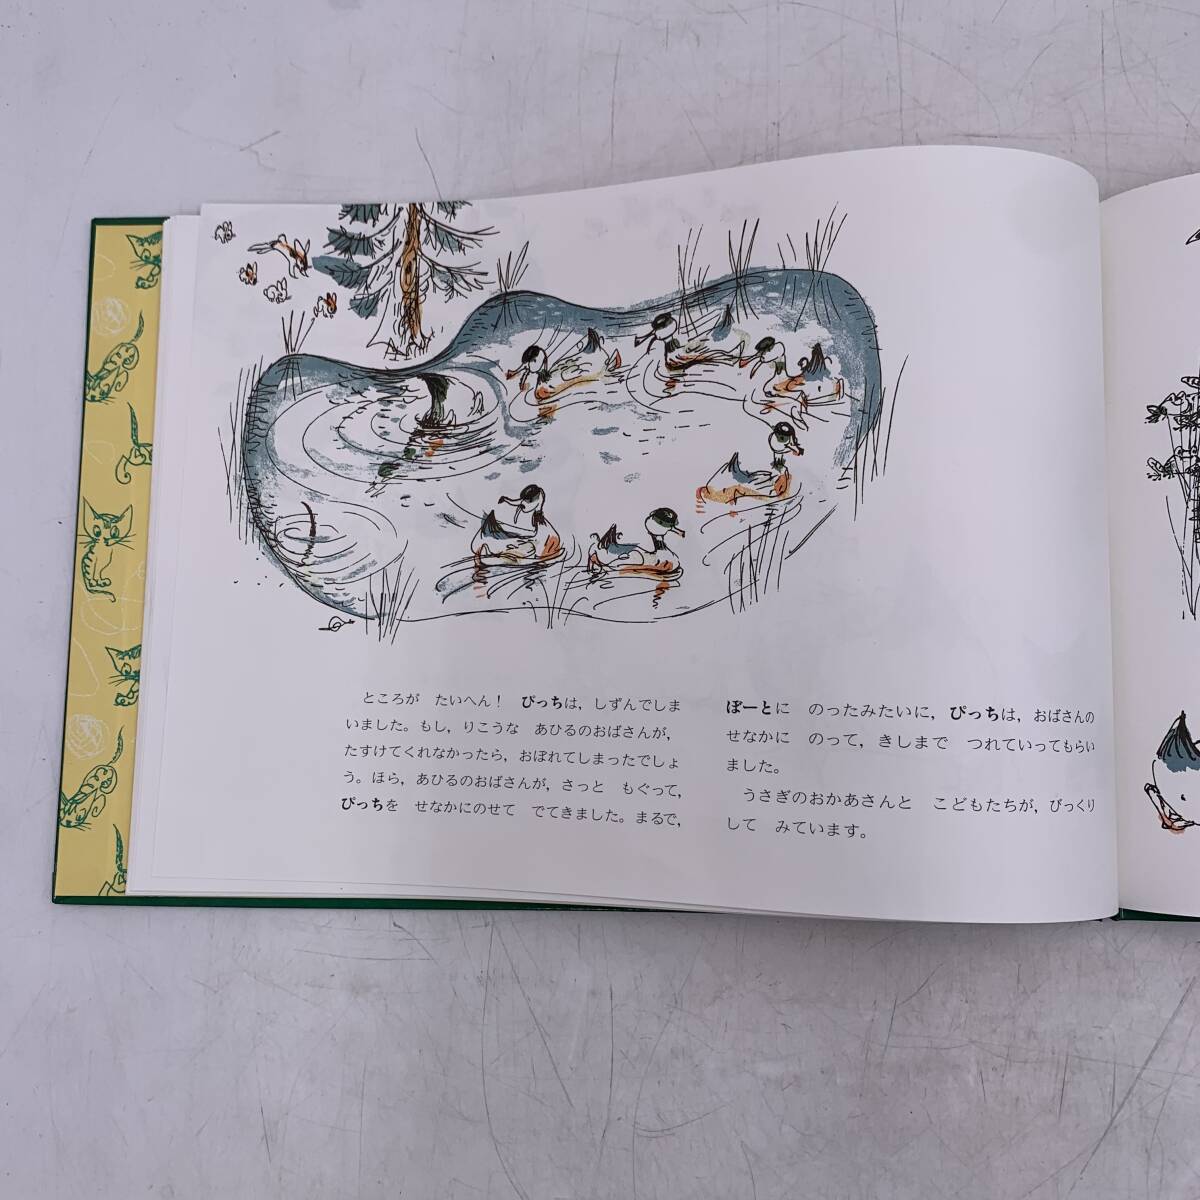 ところが　たいへん！　ぴっちは，しずんでしま
いました。もし，りこうな　あひるのおばさんが，
たすけてくれなかったら，おぼれてしまったでしょ
う。ほら，あひるのおばさんが，さっと　もぐって，
ぴっちを　せなかにのせて　でてきました。まるで，
ぼーとに　のったみたいに，ぴっちは，おばさんの
せなかに　のって，きしまで　つれていってもらい
ました。
うさぎのおかあさんと　こどもたちが，びっくり
して　みています。